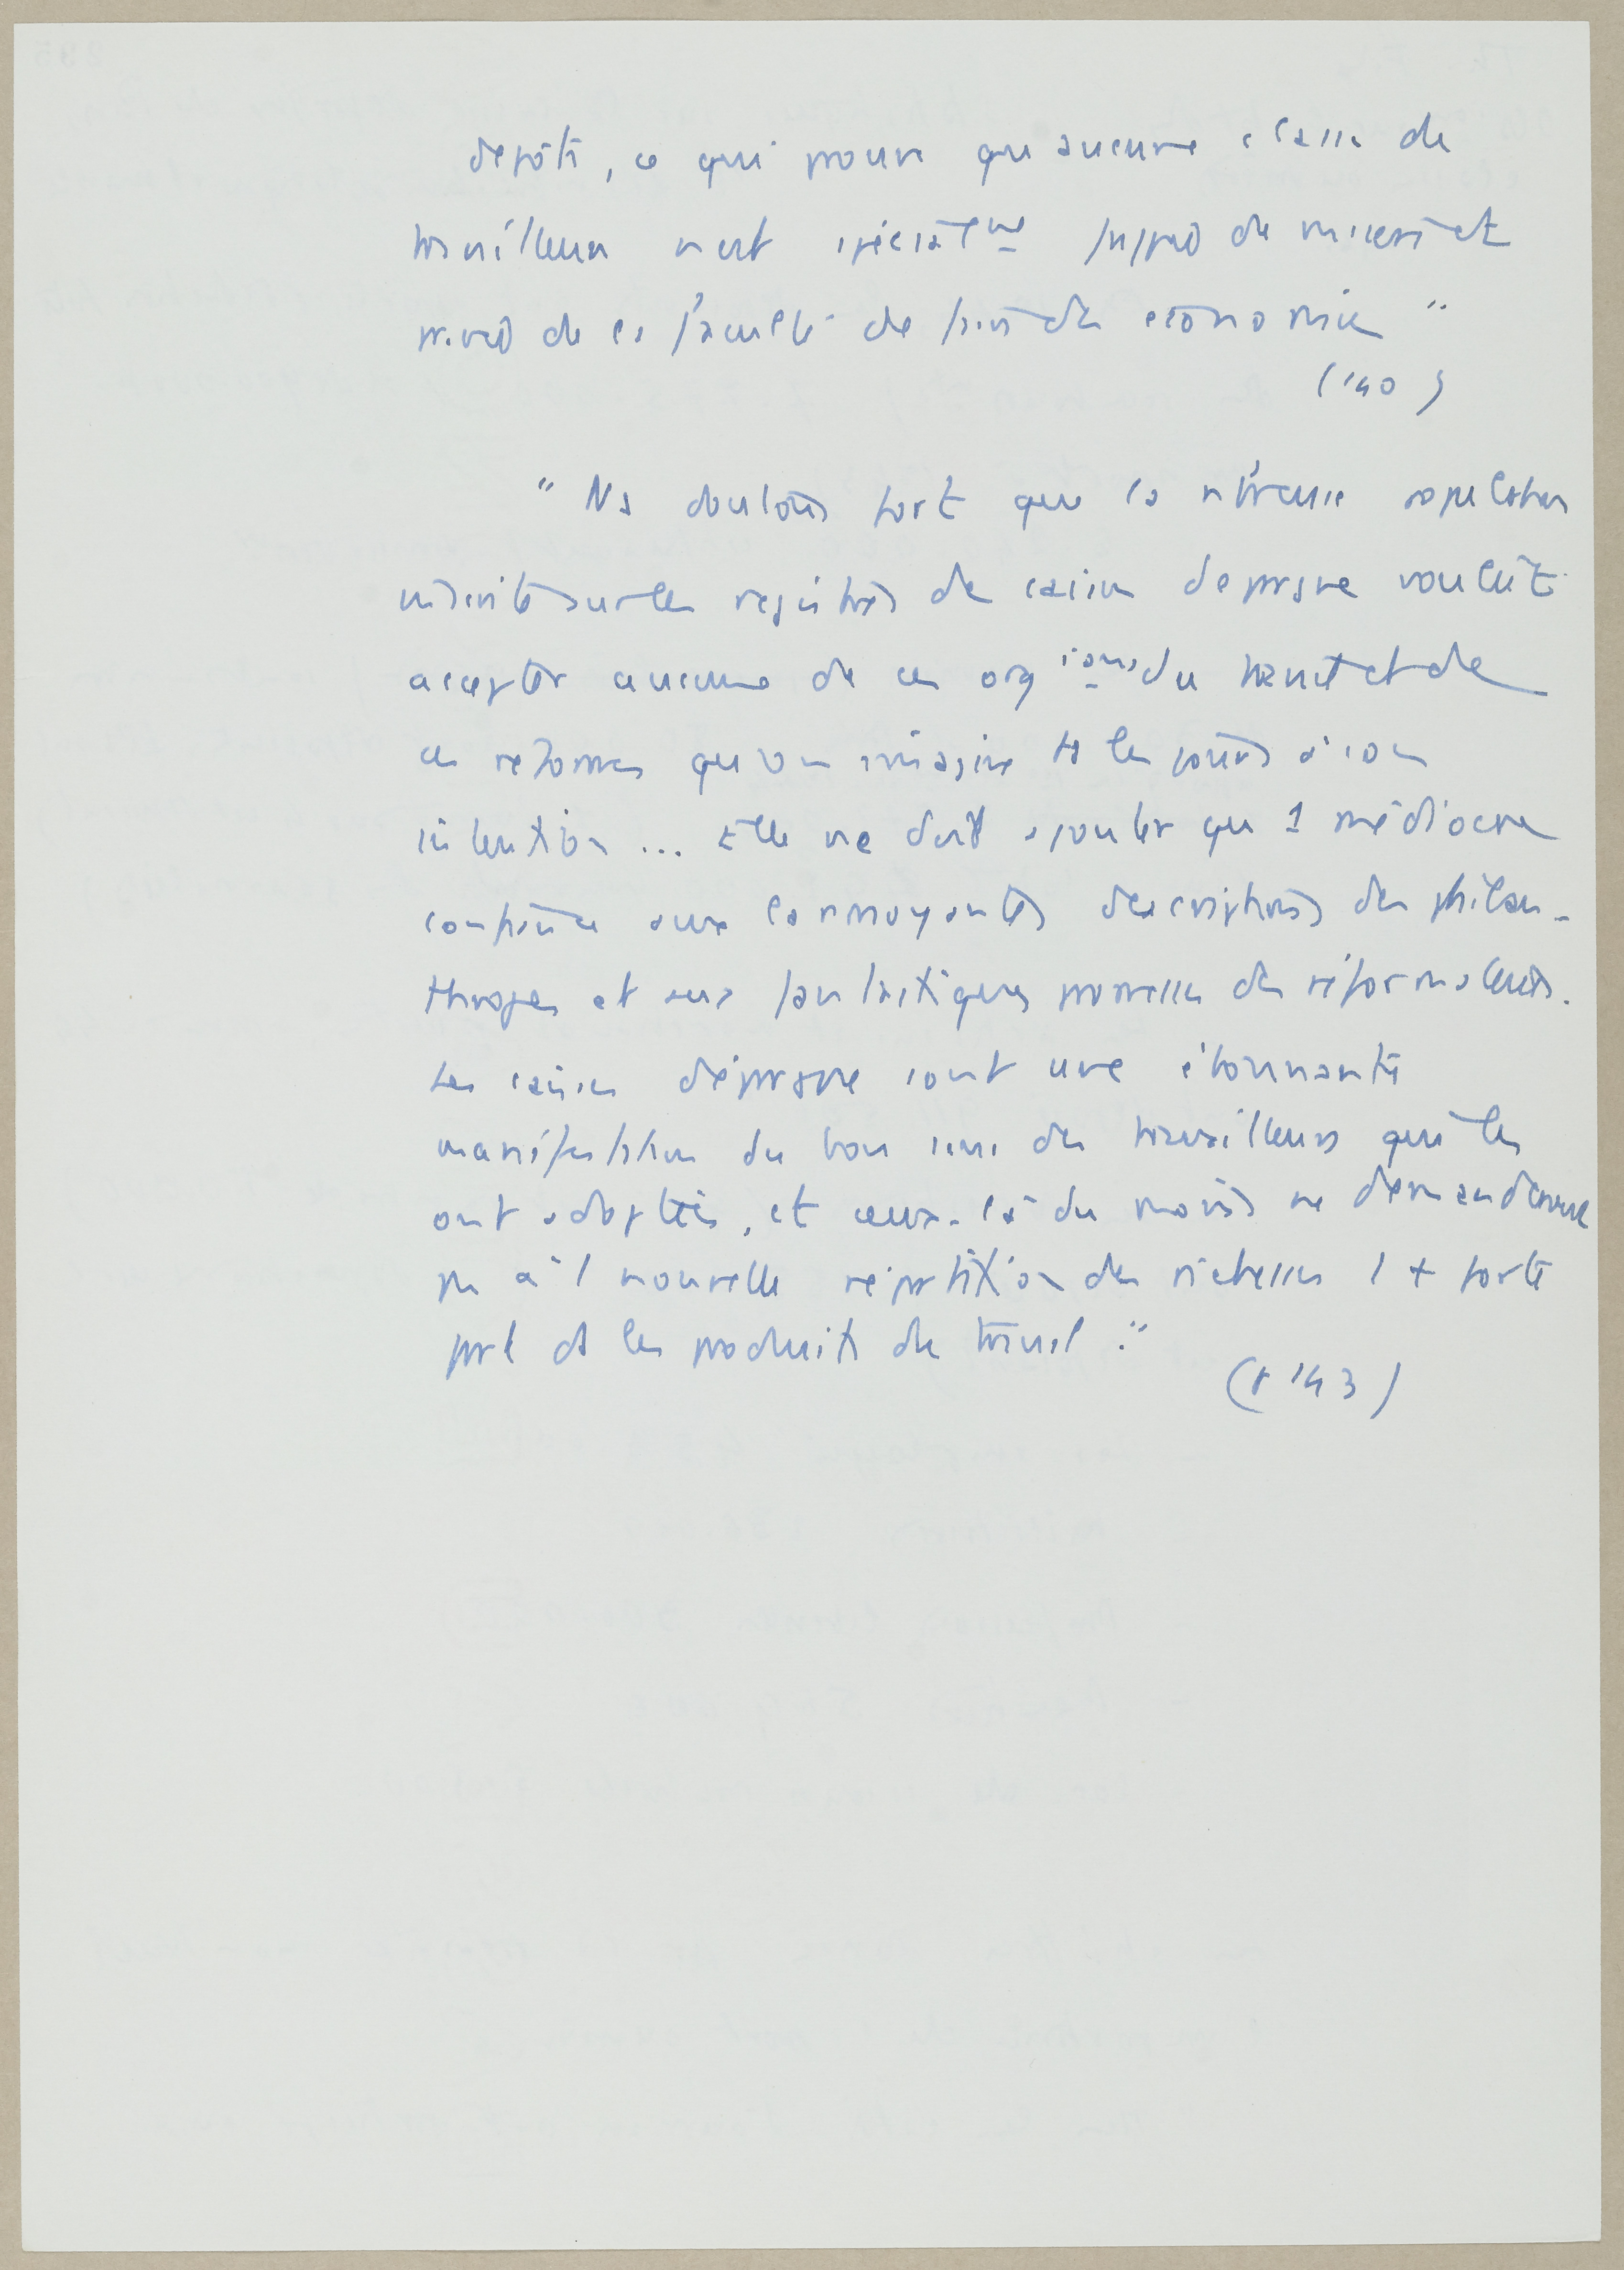 depôts, ce qui prouve qu'aucune classe de
travailleurs n'est spécialmt frappée de misère et
privée de la faculté de faire des économies"
(140)
"Ns doutons fort que la nbreuse population
inscrite sur les registres des caisses d'epargne voulût
accepter aucune de ces orgions du travail et de
ces réformes qu'on imagine ts les jours à son
intention ... Elle ne doit ajouter qu'1 médiocre
confiance aux larmoyantes descriptions des philan-
thropes et aux fantastiques promesses des réformateurs.
Les caisses d'épargne sont une étonnante
manifestation du bon sens des travailleurs qui les
ont adoptées, et ceux-là du moins ne demanderont
pas à 1 nouvelle répartition des richesses 1 + forte
part ds les produits du travail."
(p 143)